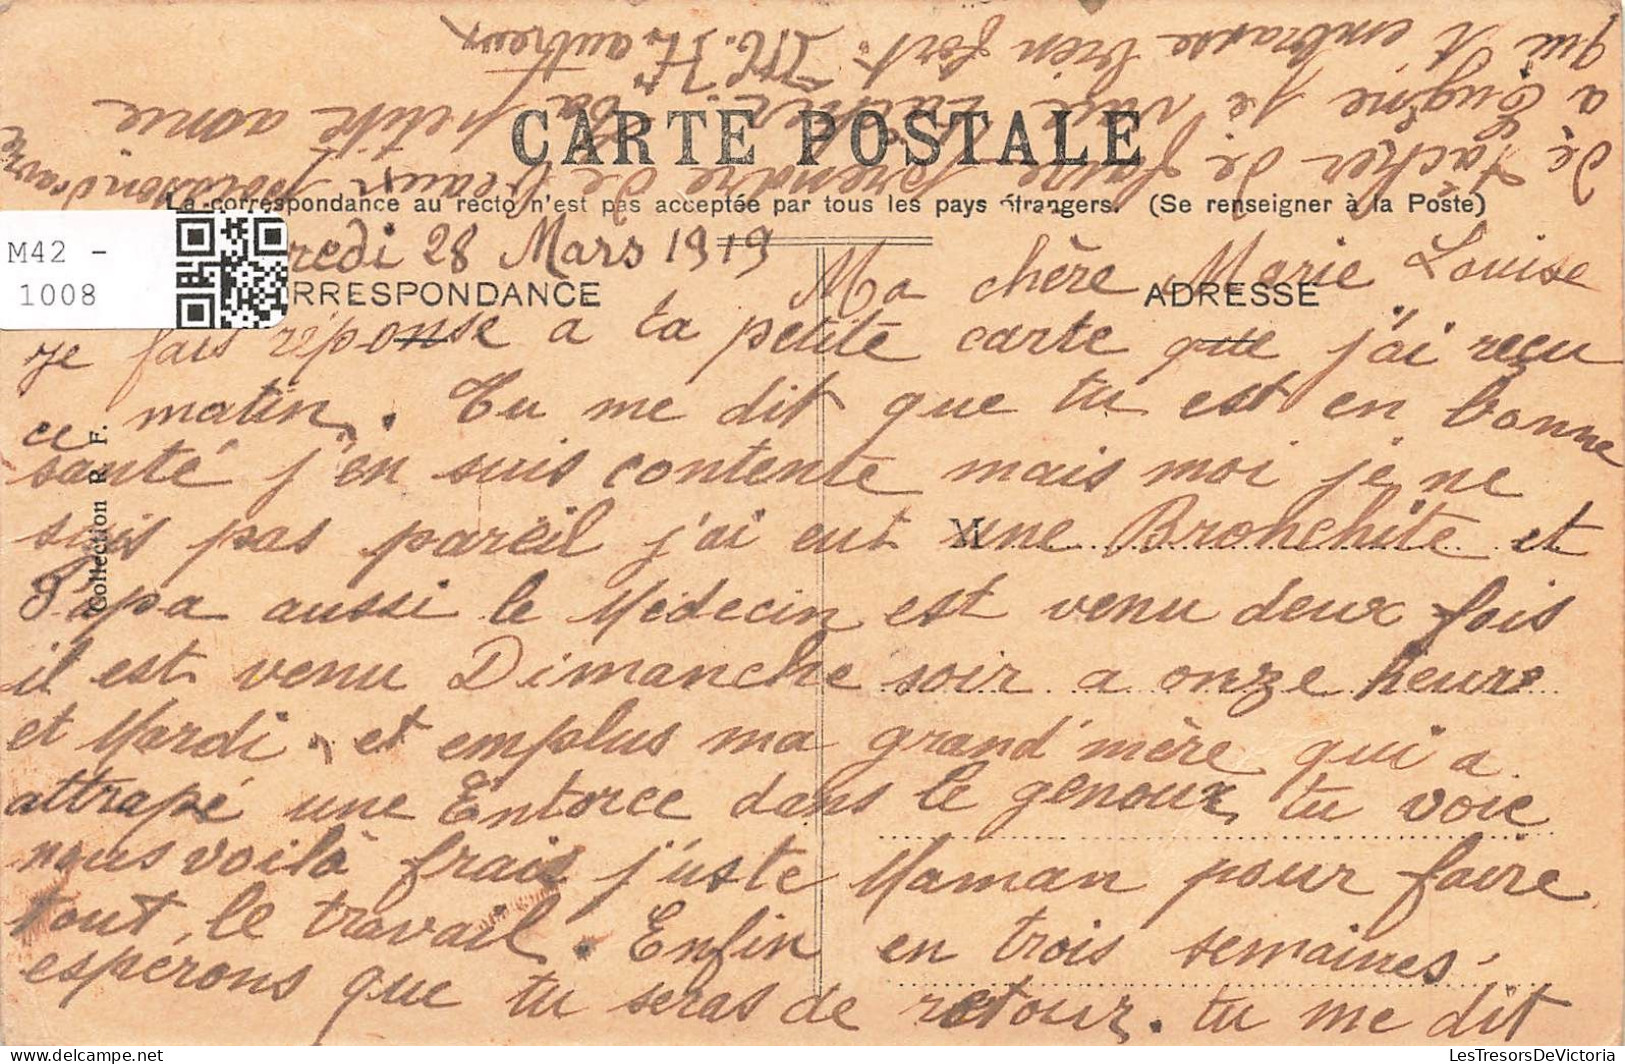 CARTE POSTALE
La correspondance au recto n'est pas acceptée par tous les pays étrangers. (Se renseigner à la Poste)
M42 -
1008
redi 28 Mars 1919
RRESPONDANCE
ADRESSE
Collection R. F.
M
Ma chère Marie Louise
je fais réponse a ta petite carte que j'ai reçu
ce matin. Tu me dit que tu est en bonne
santé j'en suis contente mais moi je ne
suis pas pareil j'ai eut une Bronchite et
Papa aussi le Médecin est venu deux fois
il est venu Dimanche soir a onze heure
et Mardi, et emplus ma grand'mère qui a
attrapé une Entorce dans le genoux tu voie
nous voilà frais j'uste Maman pour faire
tout le travail. Enfin en trois semaines
espérons que tu seras de retour. tu me dit
de tacher de faire prendre de beaux poissons d'avril
a Eugène je vais tacher. Ta petite amie
qui t'embrasse bien fort. M. H. autreux
LesTresorsDeVictoria
LesTresorsDeVictoria.com